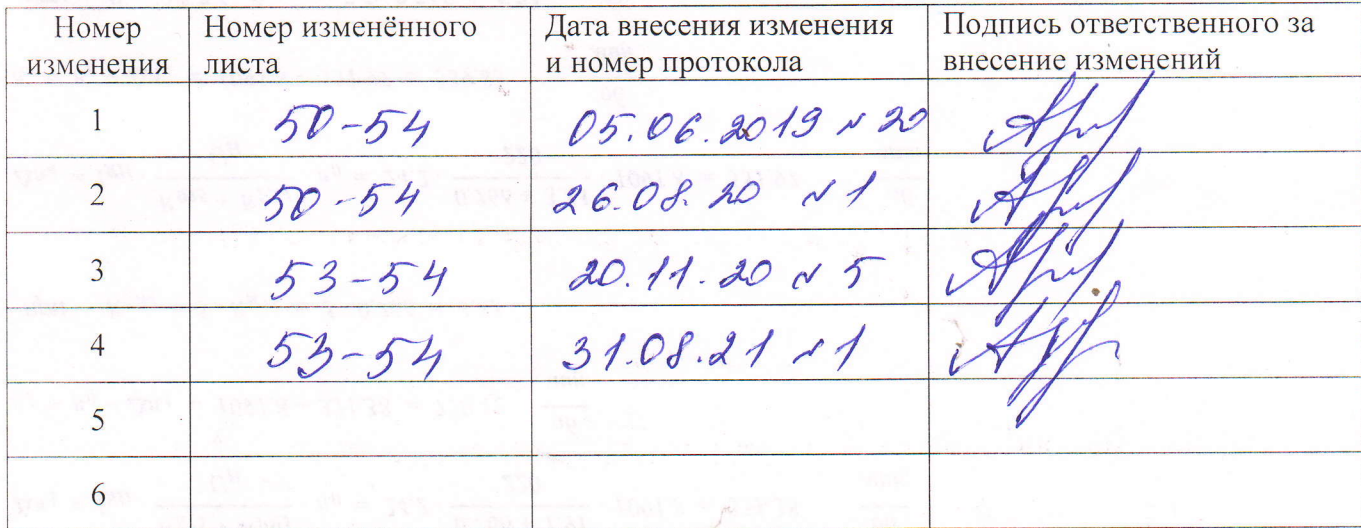 Номер изменения | Номер изменённого листа | Дата внесения изменения и номер протокола | Подпись ответственного за внесение изменений
1 | 50-54 | 05.06.2019 № 20
2 | 50-54 | 26.08.20 № 1
3 | 53-54 | 20.11.20 № 5
4 | 53-54 | 31.08.21 № 1
5
6